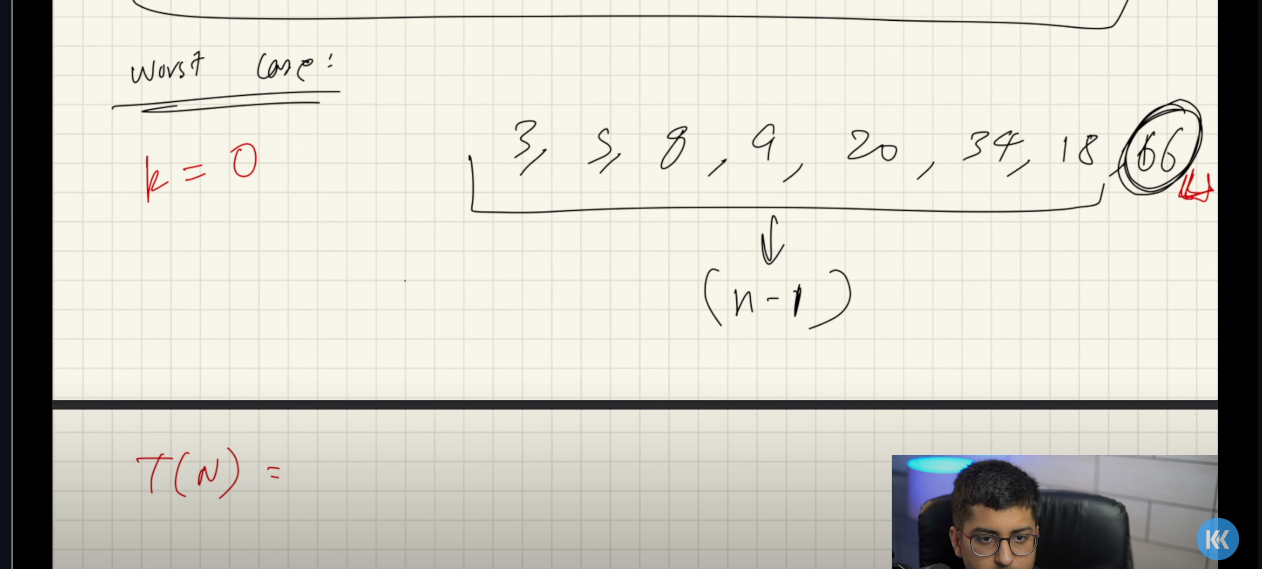 Worst Case:
k = 0
3, 5, 8, 9, 20, 34, 18, 66
(n-1)
T(N) =
KK